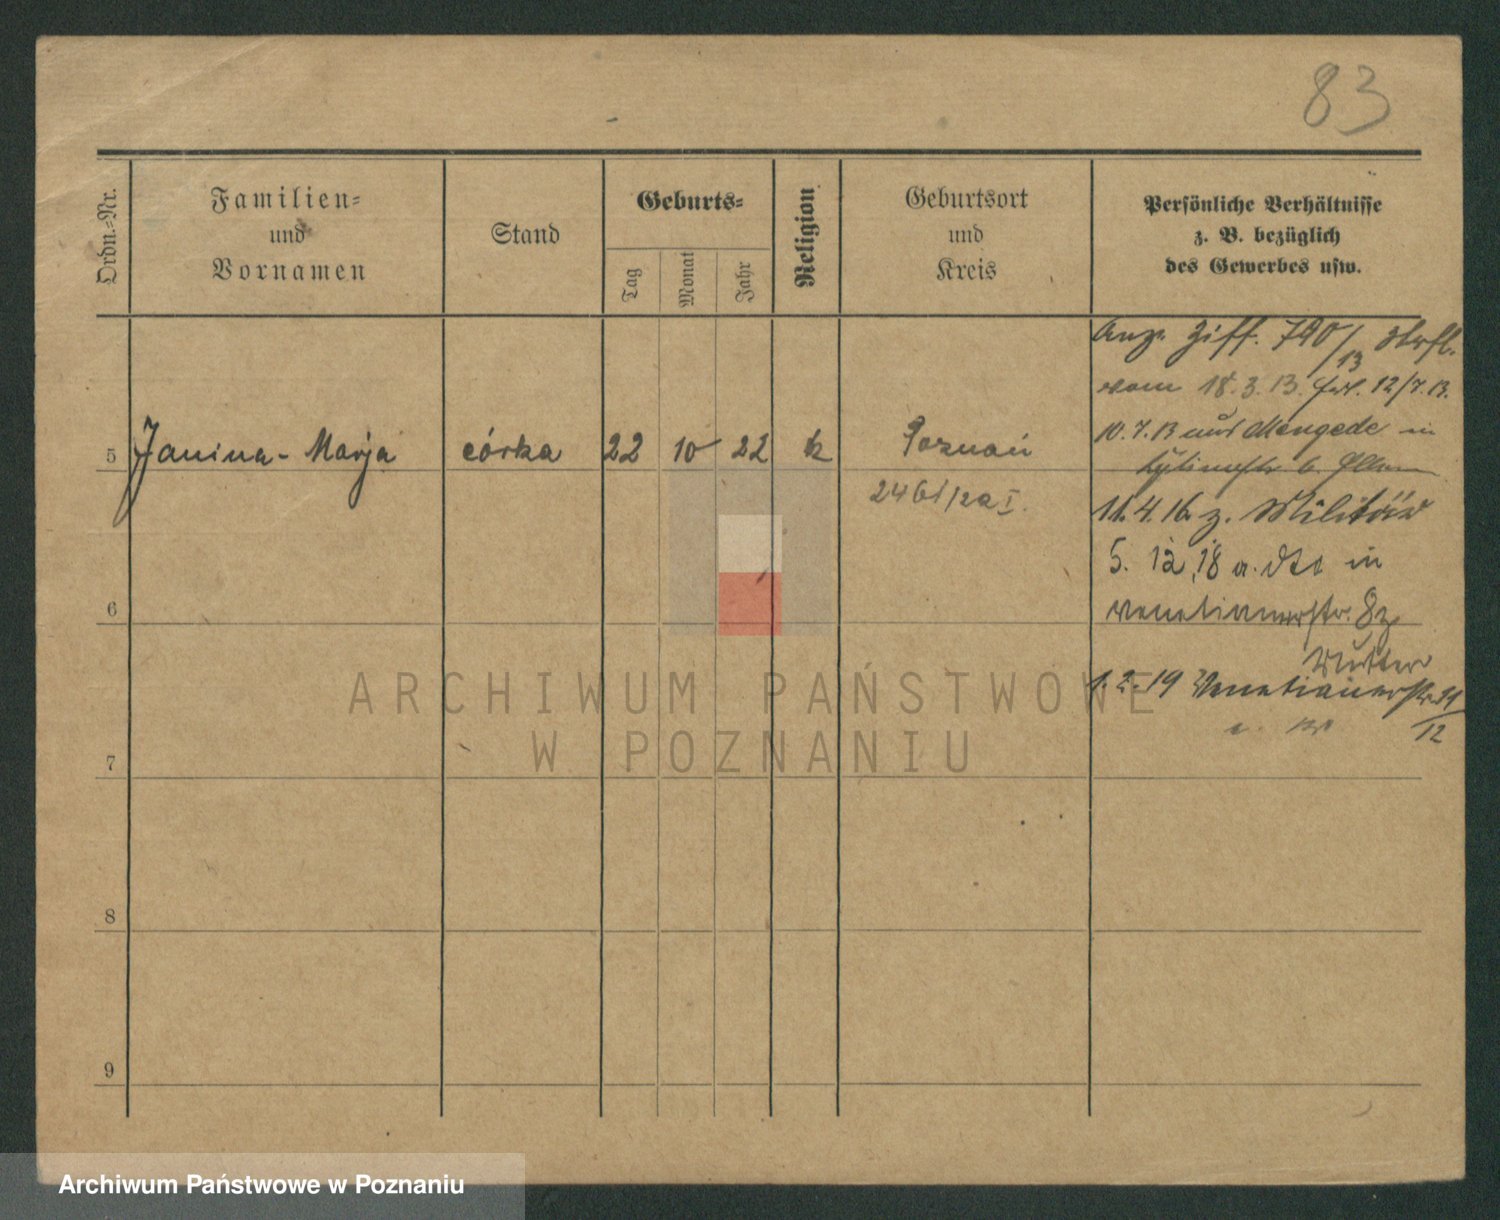 83
Ordn.-Nr.
Familien-
und
Vornamen
Stand
Geburts-
Tag
Monat
Jahr
Religion
Geburtsort
und
Kreis
Persönliche Verhältnisse
z. B. bezüglich
des Gewerbes usw.
5 Janina - Marja córka 22 10 22 k Poznań
2461/22 I.
Anz. Ziff. 740/13
vom 18.3.13. 12/7.13.
10.7.13 aus Mengede in
11.4.16. z. Militär
5. 12.18 a. dto in
Venetianerstr. 8 z
Mutter
1.2.19 Venetianerstr. 11/12
6
7
8
9
ARCHIWUM PAŃSTWOWE
W POZNANIU
Archiwum Państwowe w Poznaniu